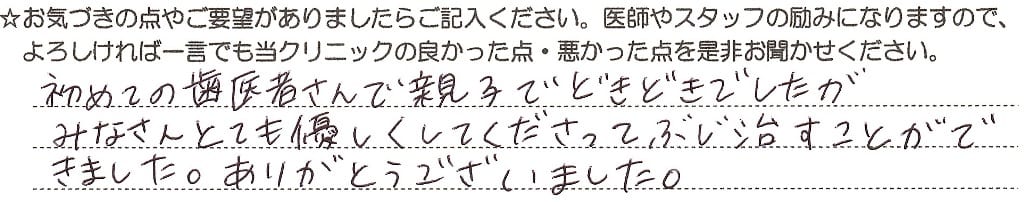 ☆お気づきの点やご要望がありましたらご記入ください。医師やスタッフの励みになりますので、
よろしければ一言でも当クリニックの良かった点・悪かった点を是非お聞かせください。
初めての歯医者さんで親子でどきどきでしたが
みなさんとても優しくしてくださってぶじ治すことがで
きました。ありがとうございました。